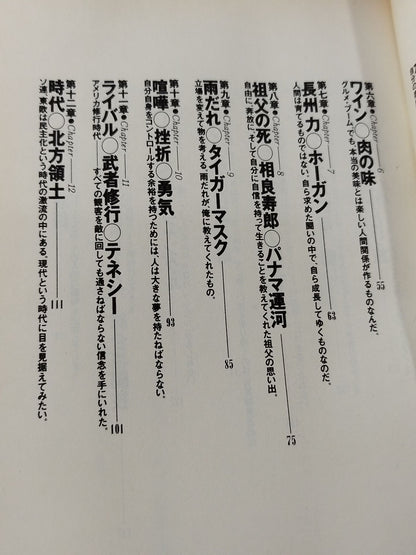 第六章●Chapter 6
ワイン◯肉の味 55
グルメ・ブームでも、本当の美味とは楽しい人間関係が作るものなんだ。
第七章●Chapter 7
長州 力◯ホーガン 63
人間は育てるものではない。自ら求めた闘いの中で、自ら成長してゆくものなのだ。
第八章●Chapter 8
祖父の死◯相良寿郎◯パナマ運河 75
自由に、奔放に、そして自分に自信を持って生きることを教えてくれた祖父の思い出。
第九章●Chapter 9
雨だれ◯タイガーマスク 85
立場を変えて物を考える。雨だれが、俺に教えてくれたもの。
第十章●Chapter 10
喧嘩◯挫折◯勇気 93
自分自身をコントロールする余裕を持つためには、人は大きな夢を持たねばならない。
第十一章●Chapter 11
ライバル◯武者修行◯テネシー 101
アメリカ修行時代、すべての観客を敵に回しても通さねばならない信念を手にいれた。
第十二章●Chapter 12
時代◯北方領土 111
ソ連、東欧は民主化という時代の激流の中にある。現代という時代に目を見据えてみたい。